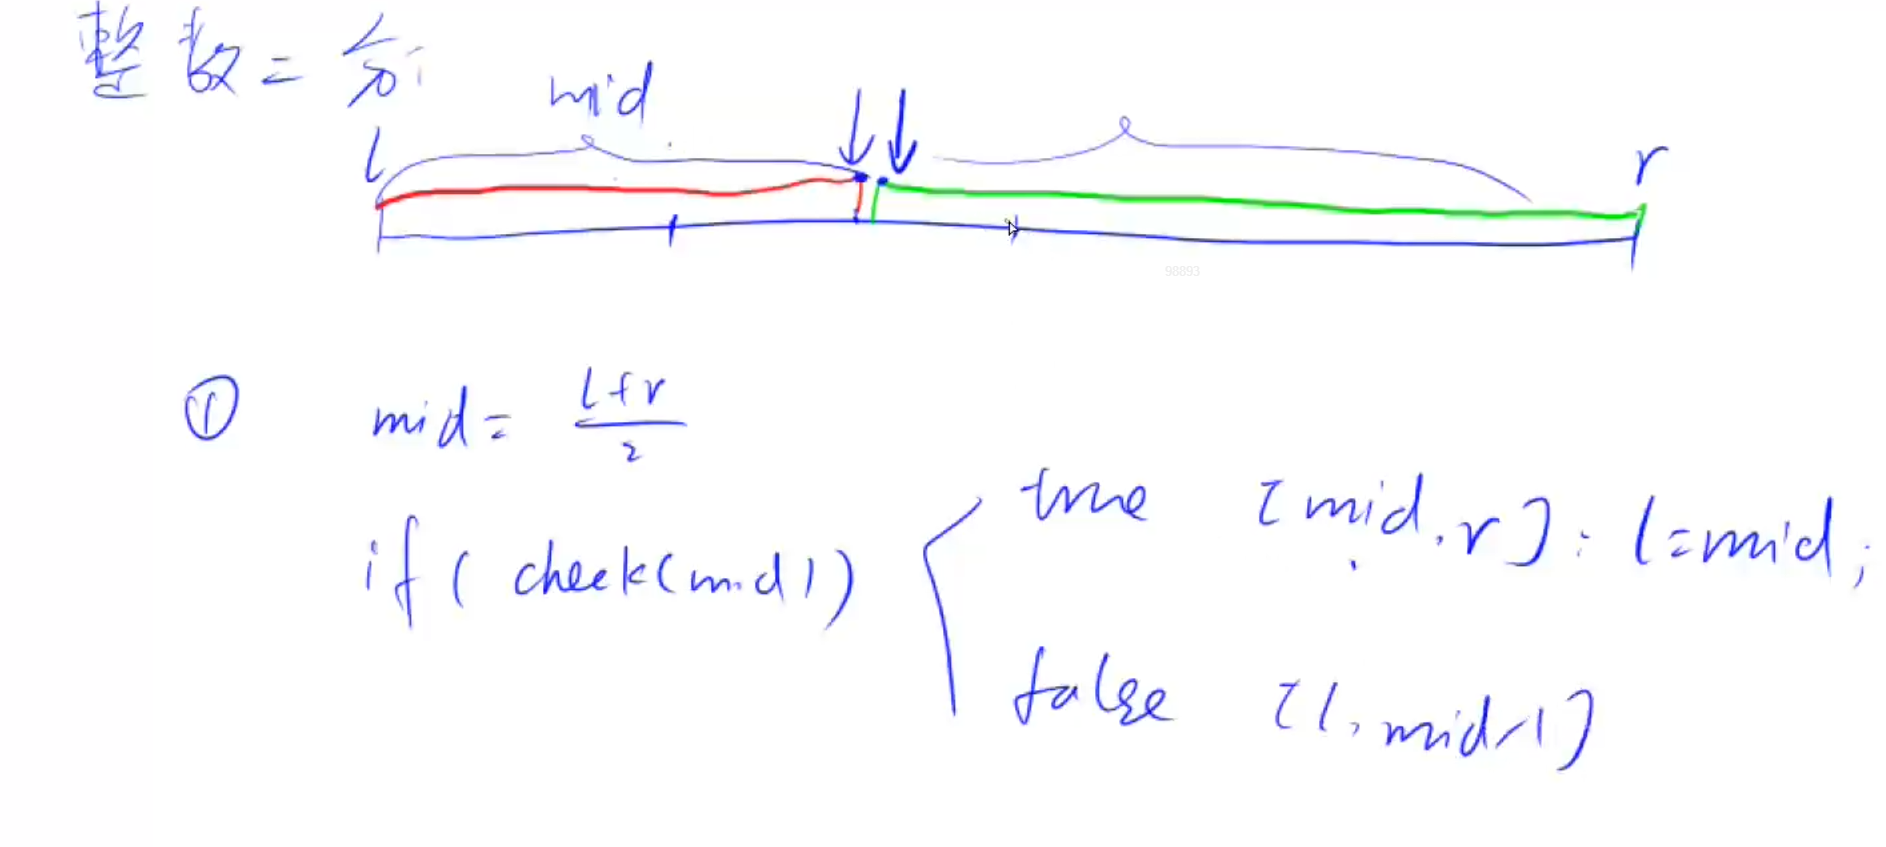 整数二分
mid
l
r
98893
① mid = (l+r)/2
if ( check(mid) )
true [mid, r] : l=mid;
false [l, mid-1]